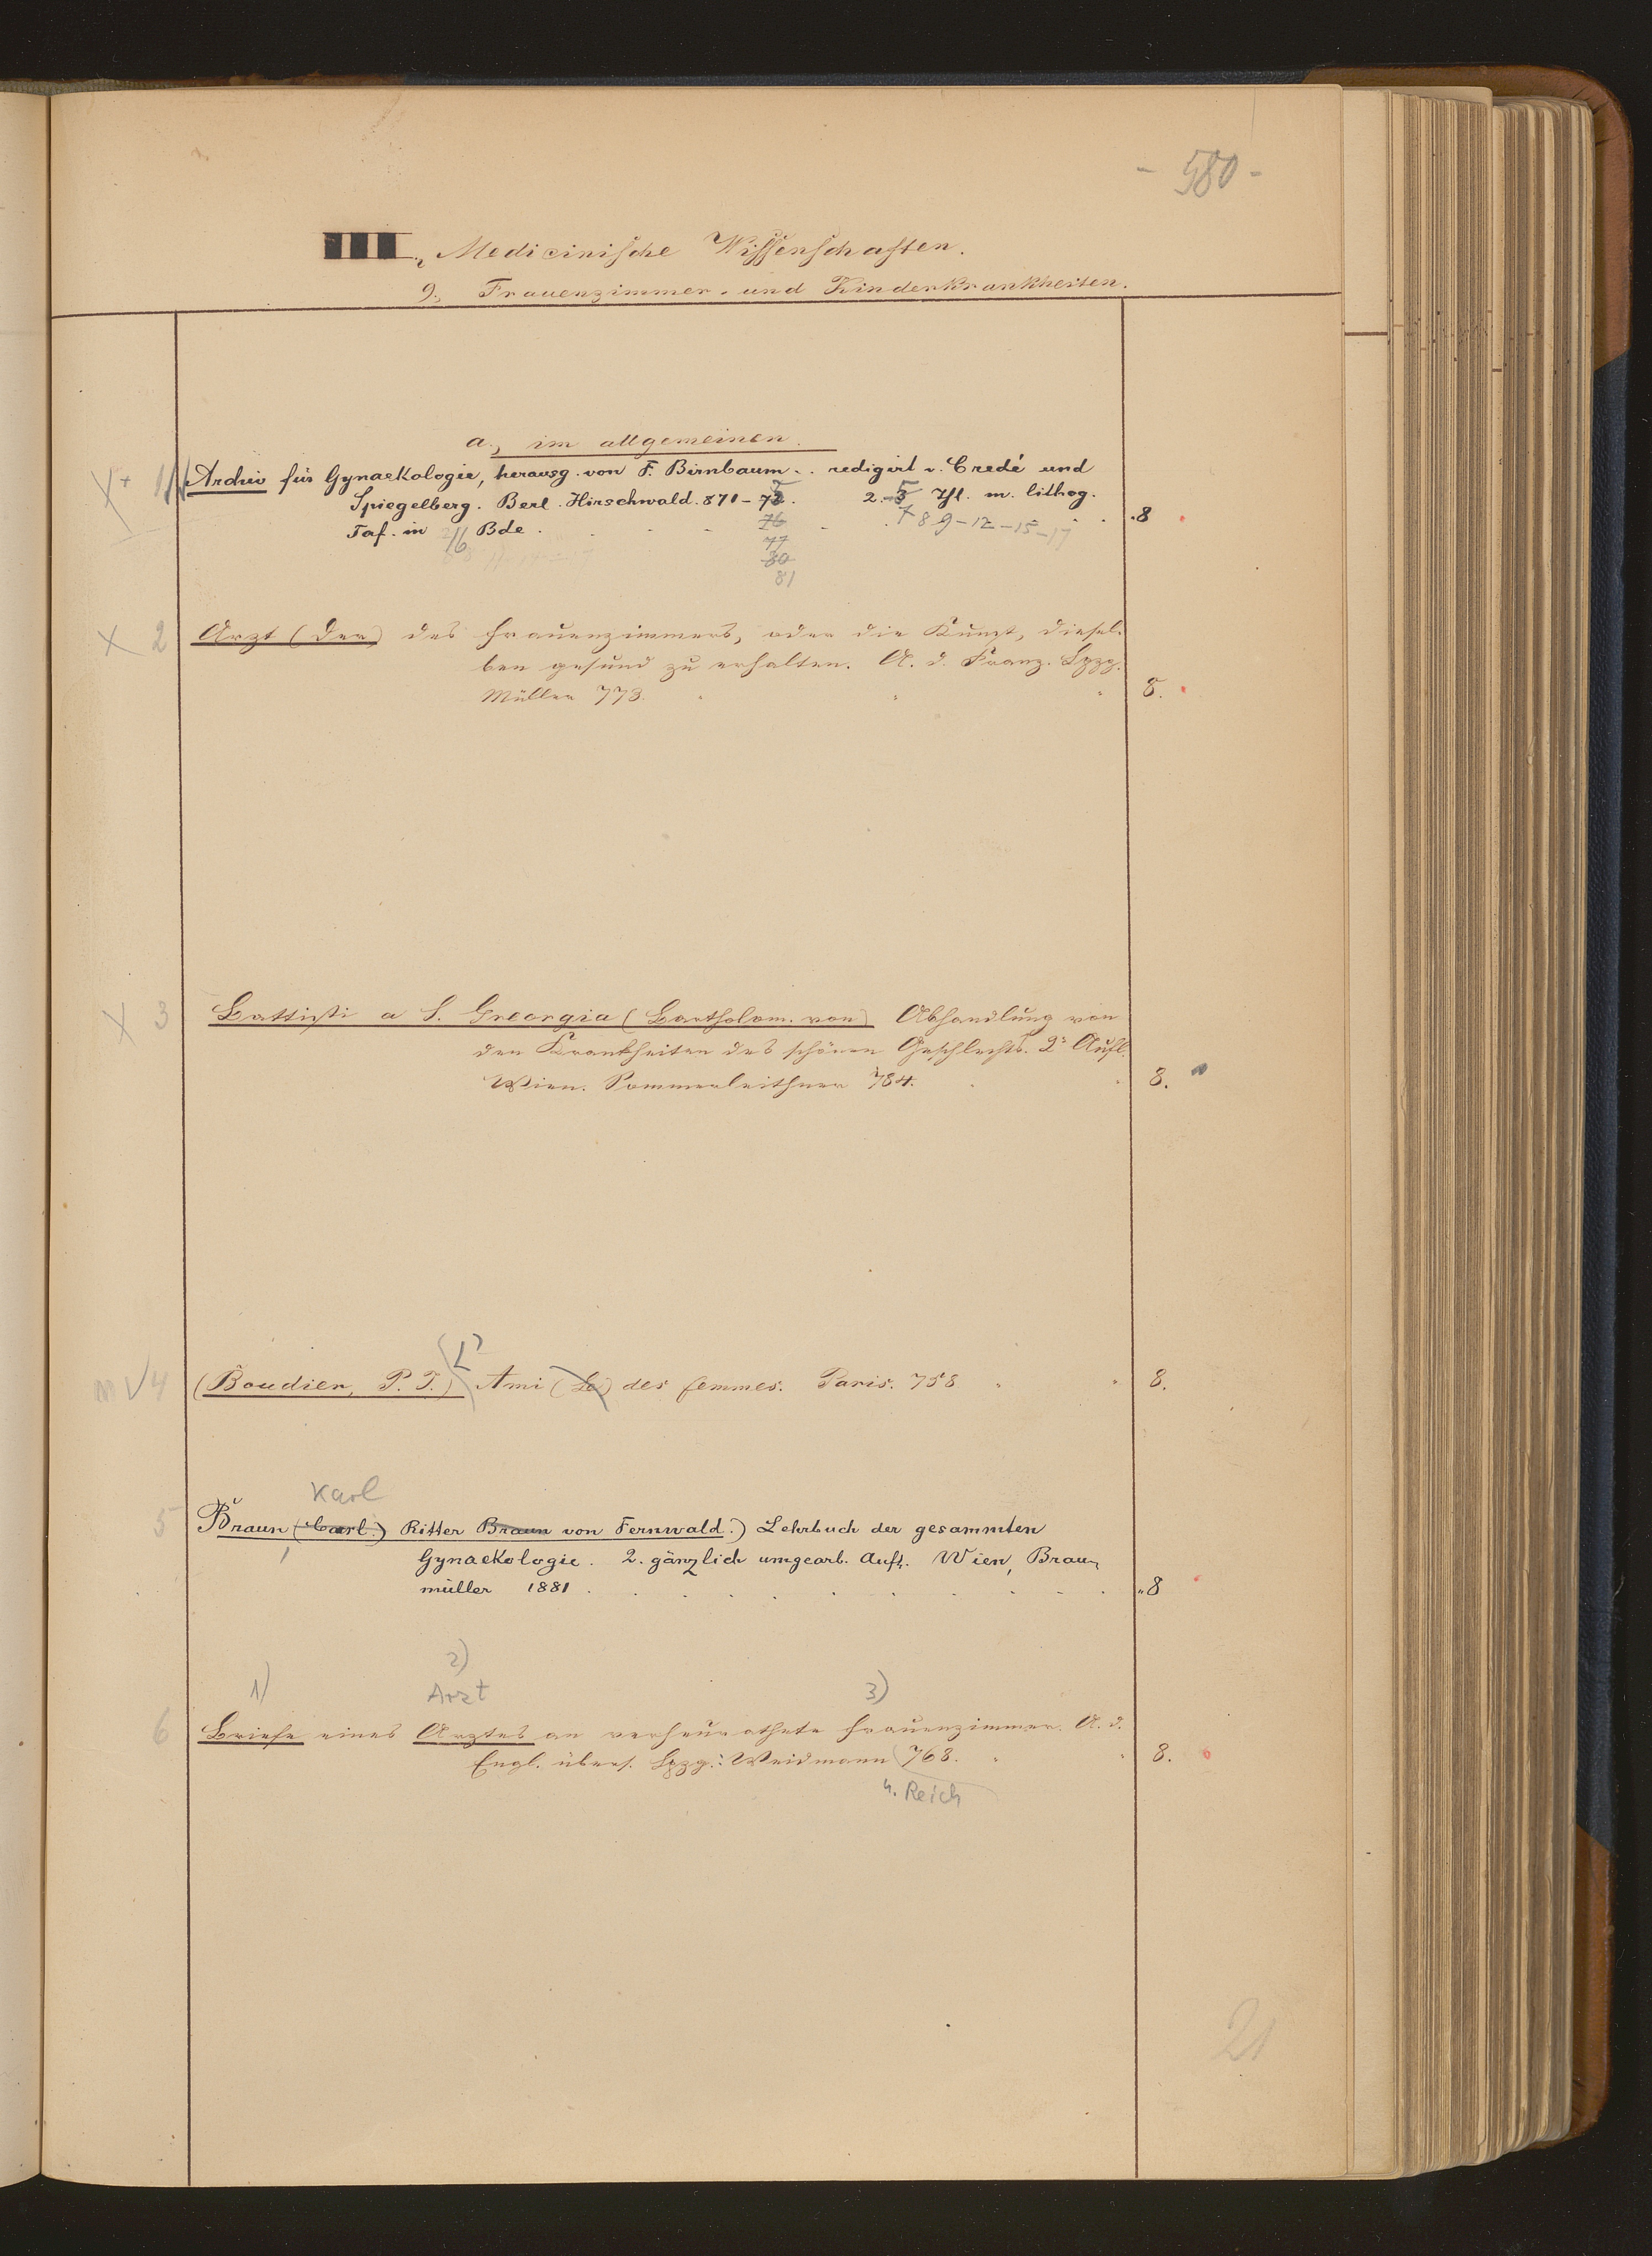 - 580 -
III., Medicinische Wissenschaften.
9., Frauenzimmer- und Kinderkrankheiten.
a., im allgemeinen.
X+ 1 Archiv für Gynaekologie, herausg. von F. Birnbaum.. redigirt v. Credé und
Spiegelberg. Berl. Hirschwald. 871-75. 2.-5 Hfl. m. lithog.
Taf. in 2/6 Bde . . 76 . 7 8 9-12-15-17 . . 8
77
80
81
X 2 Arzt (Der) des Frauenzimmers, oder die Kunst, diesel-
ben gesund zu erhalten. A. d. Franz. Lpzg.
Müller 773. " " " 8.
X 3 Battisti a S. Georgia (Bartholom. von) Abhandlung von
den Krankheiten des schönen Geschlechts. 2e Aufl.
Wien. Sommerleithner 784. " " 8.
L'
m √ 4 (Boudier, P. T.) Ami (Le) des femmes. Paris. 758 " " 8.
Karl
5 Braun (Carl.) Ritter Braun von Fernwald.) Lehrbuch der gesammten
Gynaekologie. 2. gänzlich umgearb. Aufl. Wien, Brau-
müller 1881 . . . . . . . . . . "8
1) 2) 3)
Arzt
6 Briefe eines Arztes an verheurathete Frauenzimmer. A. d.
Engl. übers. Lpzg.: Weidmann 768. " " 8.
u. Reich
21